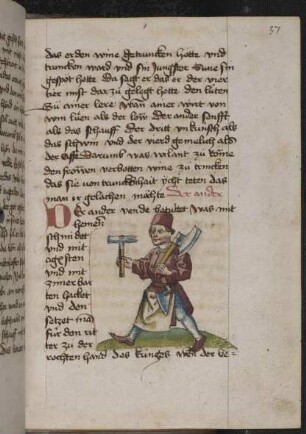 37
das er den wine getruncken hette vnd
truncken ward vnd sin Jungster Sune sin
gespot hette da sagt er das er der vier
tier mist dar zu gelegt hette den luten
Zu einer lere wan einer wirt von
vom win als der low der ander senfft
als das schauff Der dritt vnkunsch als
das schwin vnd der vierd gemelich als
der affe Darumb was verlant zu Rome
den frowen verbotten wine zu trincken
das sie von trunckenhait ycht teten das
man ir gelachen mochte Der ander
Der ander vende betutet was mit
hemern
schmidet
vnd mit
agesten
vnd mit
zimer bar
ten hacket
vnd den
setzet man
fur den rit
ter zu der
rechten hand des kunges wen der